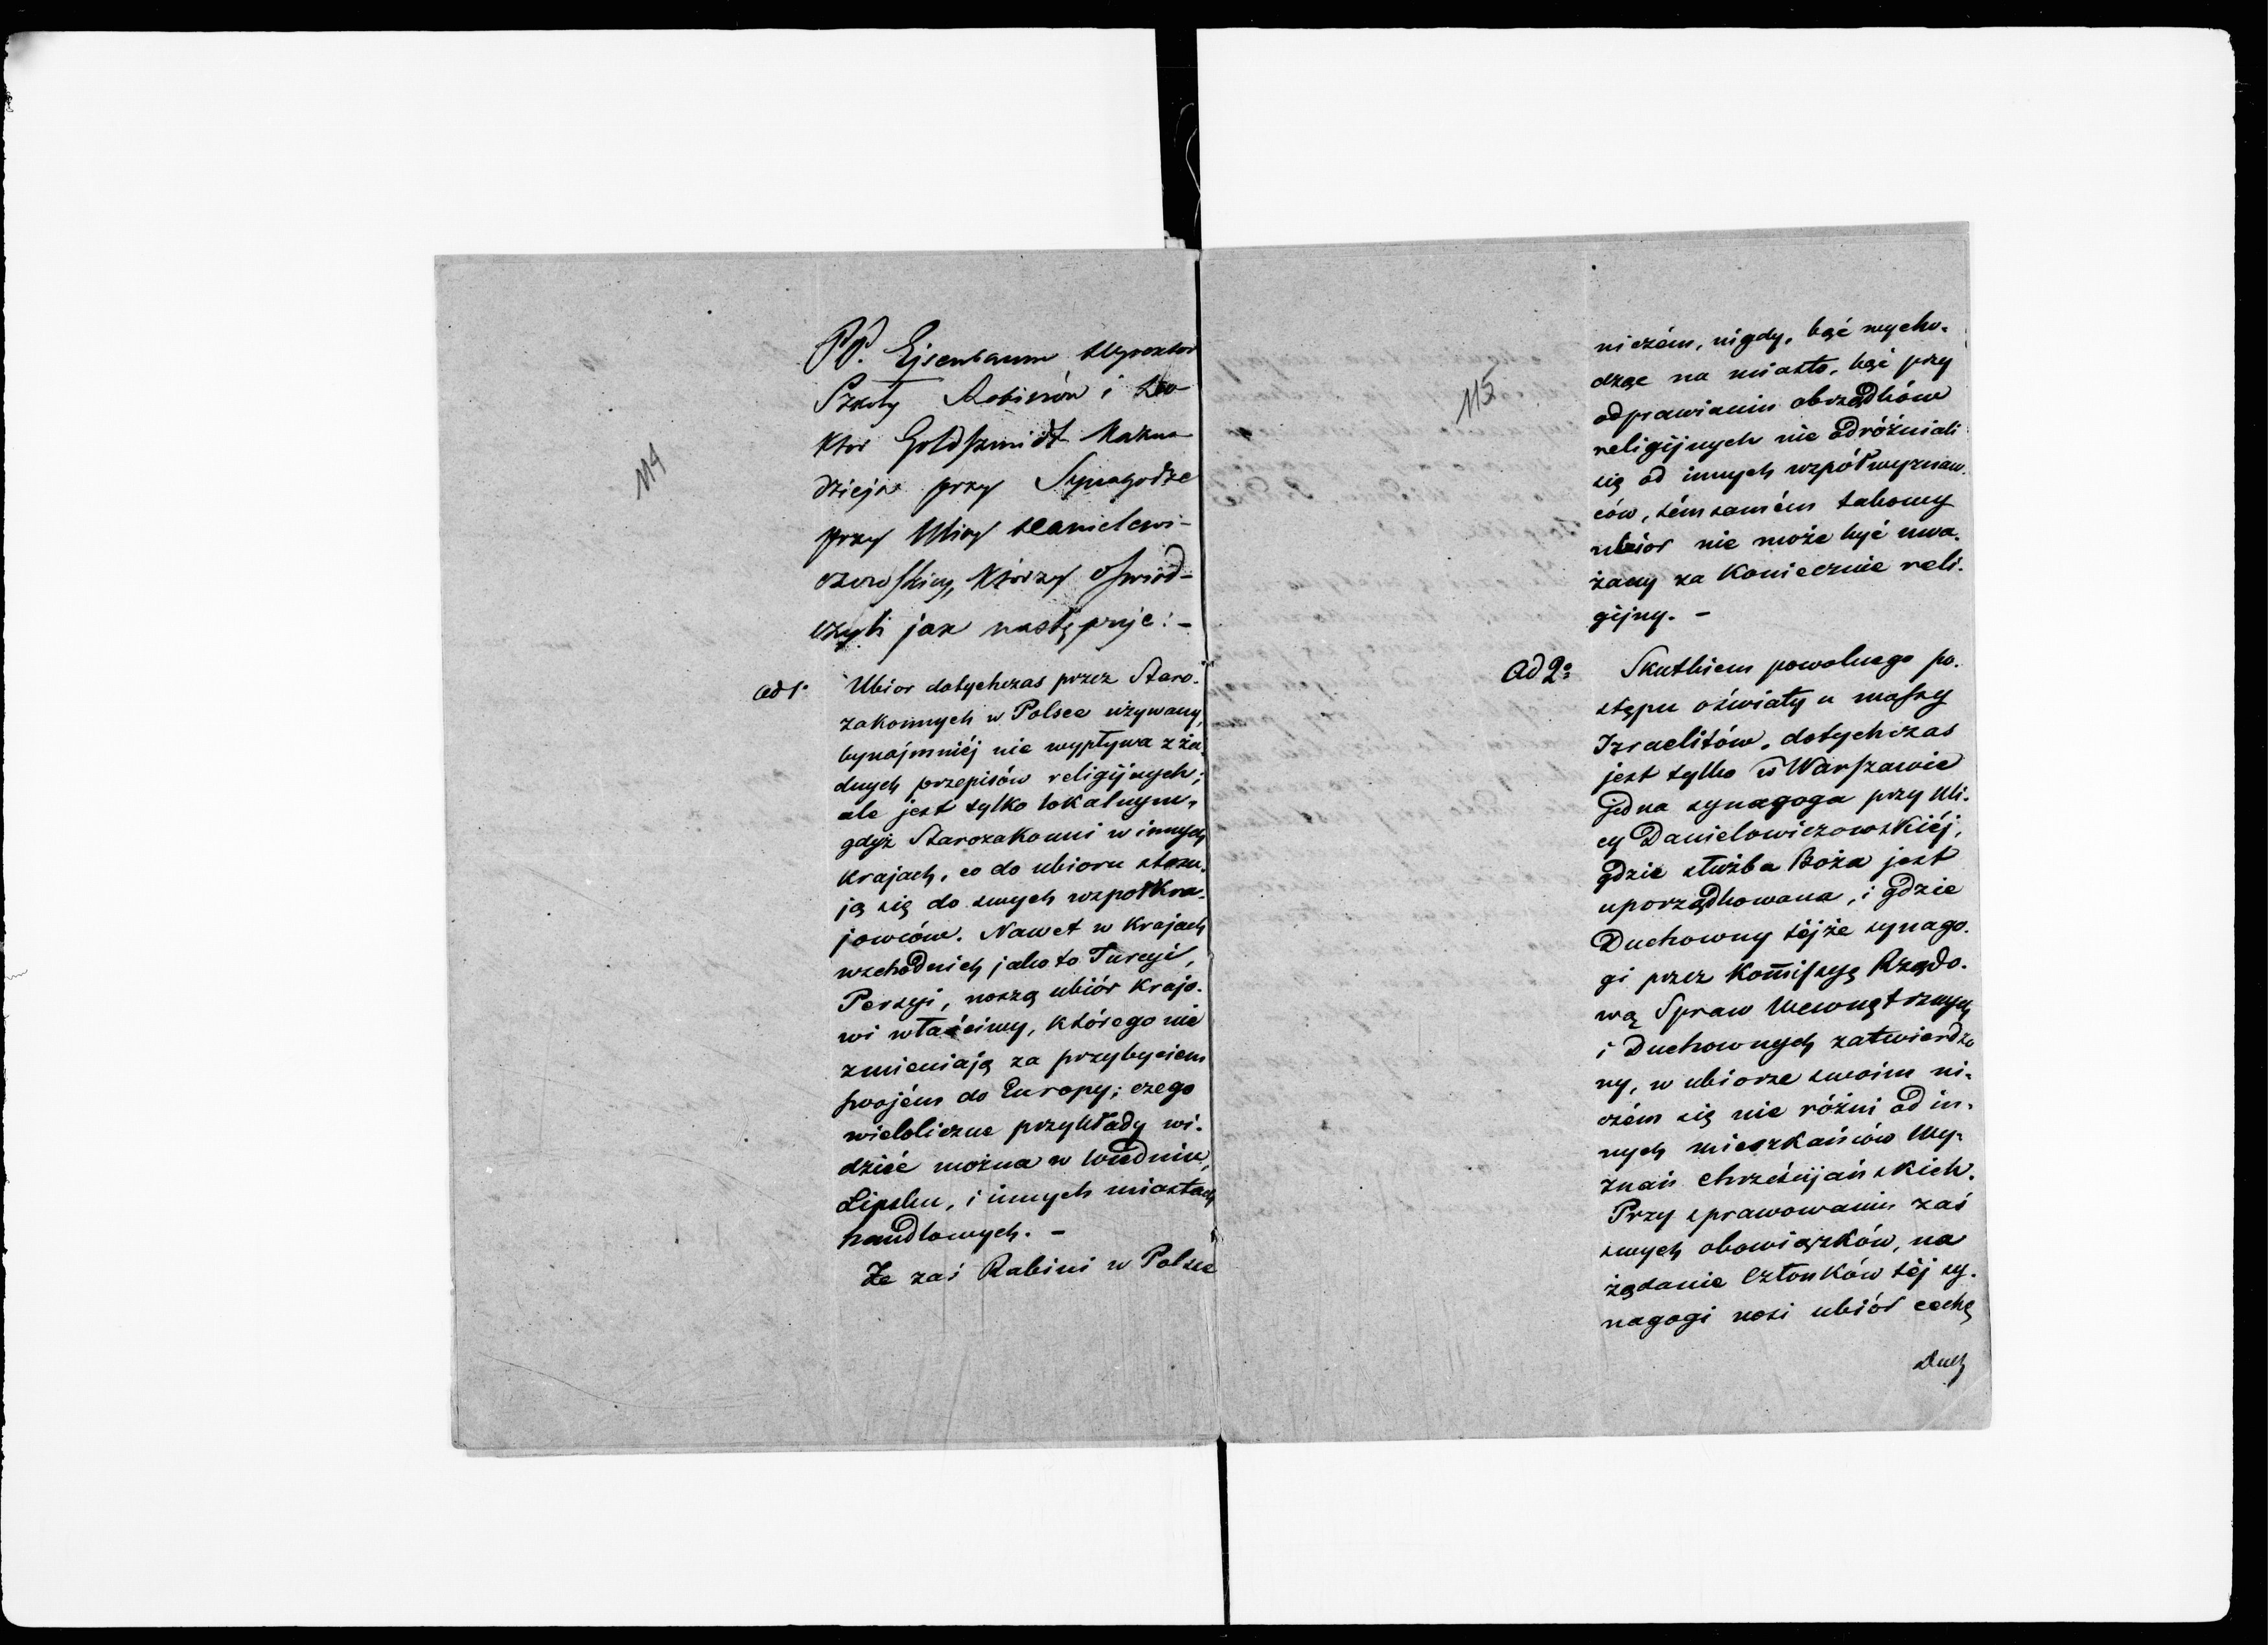 114
PP. Ejsenbaum Dyrektor
Szkoły Rabinów i Do-
ktor Goldszmidt Kazno-
dzieja przy Synagodze
przy Ulicy Danielewi-
czowskiey, którzy oświad-
czyli jak następuje: -
ad 1° Ubior dotychczas przez Staro-
zakonnych w Polsce używany,
bynajmniéj nie wypływa z ża-
dnych przepisów religijnych;
ale jest tylko lokalnym,
gdyż Starozakonni w innych
krajach, co do ubioru stosu-
ją się do swych wspołkra-
jowców. Nawet w krajach
wschodnich jako to Turcyi,
Persyi, noszą ubiór krajo-
wi właściwy, którego nie
zmieniają za przybyciem
swojém do Europy; czego
wieloliczne przykłady wi-
dzieć można w Wiedniu,
Lipsku, i innych miastach
handlowych. -
Że zaś Rabini w Polsce
115
niczém, nigdy, bąć wycho-
dząc na miasto, bąć przy
odprawianiu obrządków
religijnych nie odróżniali
się od innych współwyznaw-
ców, témsamém takowy
ubior nie może być uwa-
żany za koniecznie reli-
gijny. -
Ad 2° Skutkiem powolnego po-
stępu oświaty u massy
Izraelitów, dotychczas
jest tylko w Warszawie
jedna synagoga przy Uli-
cy Danielowiczowskiéj,
gdzie służba Boża jest
uporządkowana, i gdzie
Duchowny téjże synago-
gi przez Kom̄issyą Rządo-
wą Spraw Wewnętrznych
i Duchownych zatwierdzo
ny, w ubiorze swoim ni-
czém się nie różni od in-
nych mieszkańców Wy-
znań chrześcijańskich.
Przy sprawowaniu zaś
swych obowiązków, na
żądanie członków téj sy-
nagogi nosi ubiór cechę
duch